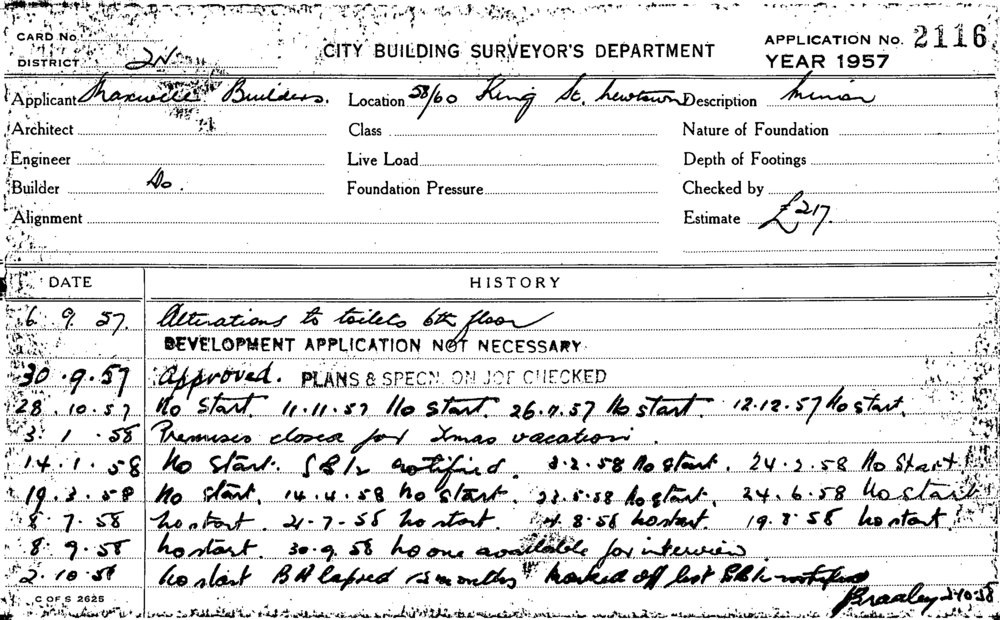 CARD No.
DISTRICT 2N
CITY BUILDING SURVEYOR'S DEPARTMENT
APPLICATION No. 2116
YEAR 1957
Applicant Maxwell Builders. Location 58/60 King St. Newtown Description Minor
Architect Class Nature of Foundation
Engineer Live Load Depth of Footings
Builder Do. Foundation Pressure Checked by
Alignment Estimate £217.
DATE HISTORY
6. 9. 57. Alterations to toilets 6th floor
DEVELOPMENT APPLICATION NOT NECESSARY
30.9.57 Approved. PLANS & SPECN. ON JOB CHECKED
28.10.57 No Start. 11.11.57 No Start. 26.11.57 No start. 12.12.57 No start.
3.1.58 Premises closed for Xmas vacation.
14.1.58 No Start. notified. 3.2.58 No start. 24.2.58 No Start.
19.3.58 No start. 14.4.58 No start. 23.5.58 No start. 24.6.58 No start
8.7.58 No start. 21.7.58 No start. 4.8.58 No start. 19.8.58 No start.
8.9.58 No start. 30.9.58 No one available for interview
2.10.58 No start BA lapsed 12 months marked off list notified
2.10.58
C OF S 2625